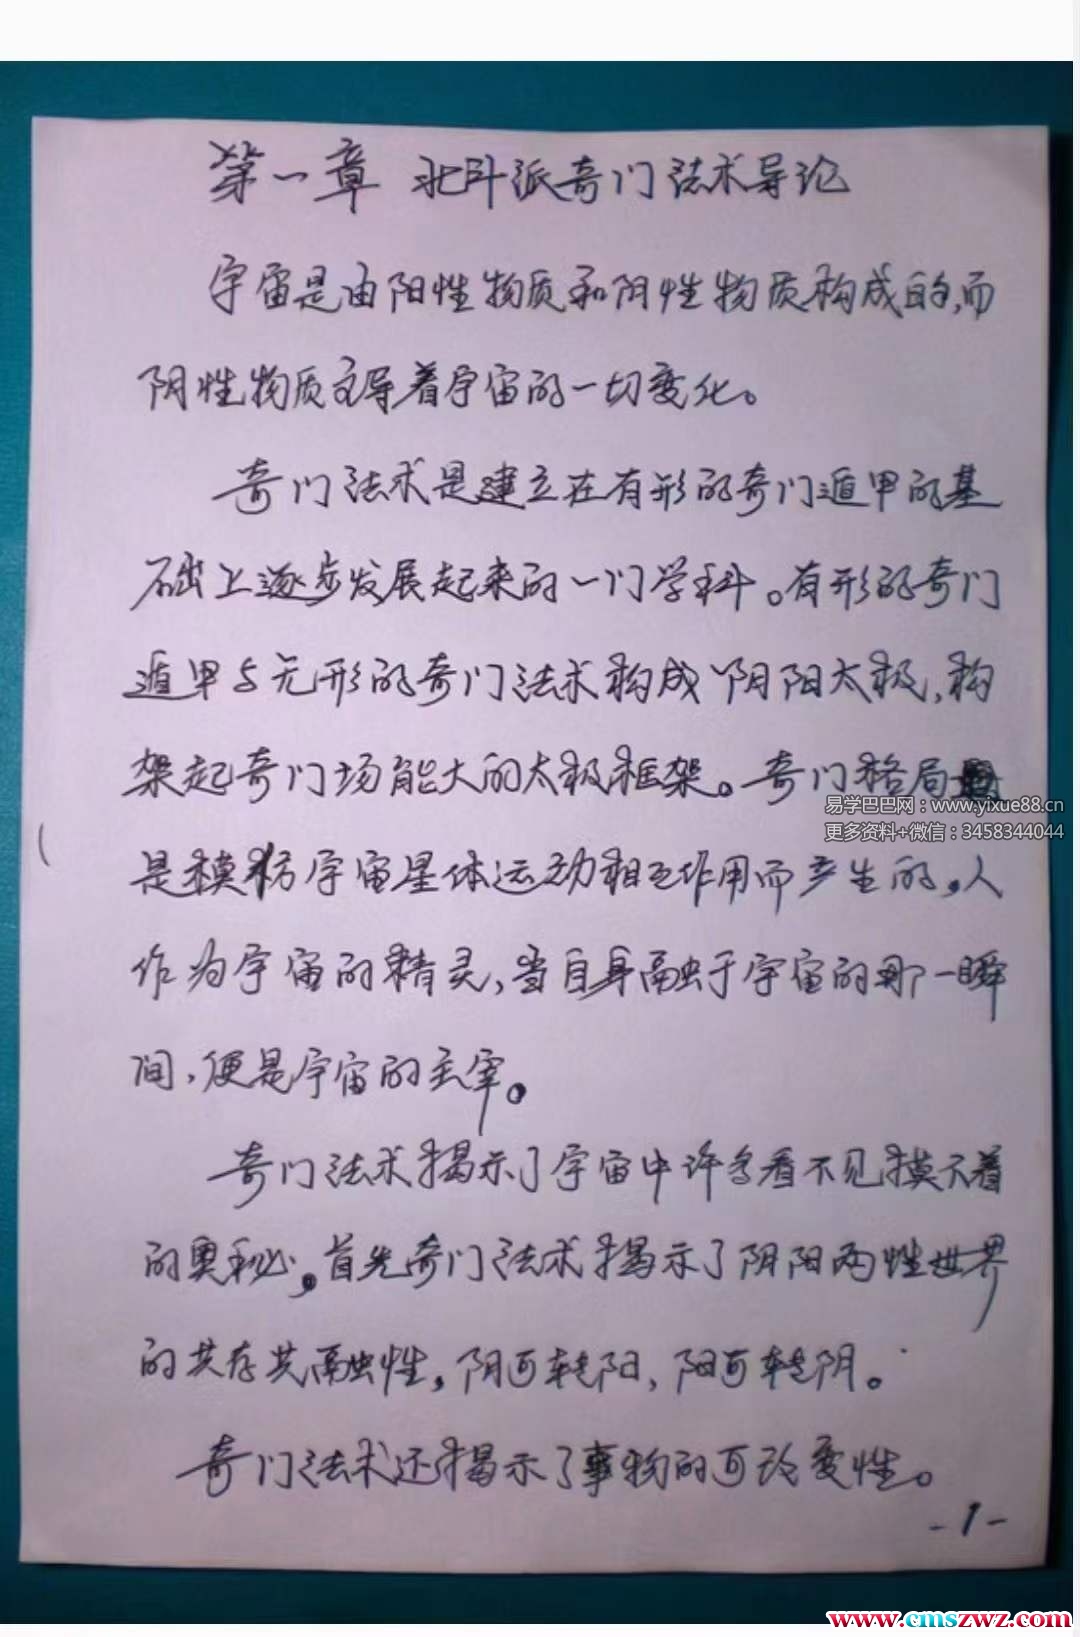 第一章 北斗派奇门法术导论
宇宙是由阳性物质和阴性物质构成的,而
阴性物质主导着宇宙的一切变化。
奇门法术是建立在有形的奇门遁甲的基
础上逐步发展起来的一门学科。有形的奇门
遁甲与无形的奇门法术构成阴阳太极,构
架起奇门场能大的太极框架。奇门格局
易学巴巴网:www.yixue88.cn
更多资料+微信:3458344044
是模仿宇宙星体运动相互作用而产生的。人
作为宇宙的精灵,当自身融于宇宙的那一瞬
间,便是宇宙的主宰。
奇门法术揭示了宇宙中许多看不见摸不着
的奥秘。首先奇门法术揭示了阴阳两性世界
的共存共融性。阴可转阳,阳可转阴。
奇门法术还揭示了事物的可改变性。
-1-
www.cmszwz.com